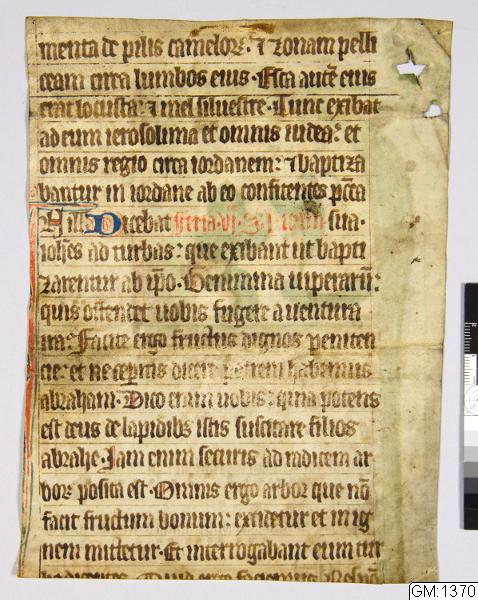 menta de pilis camelorꝝ. ⁊ zonam pelli
ceam circa lumbos eius. Esca autē eius
erat locusta: ⁊ mel siluestre. Tunc exibat
ad eum ierosolima et omnis iudea: et
omnis regio circa iordanem: ⁊ baptiza
bantur in iordane ab eo confitentes pcc̄a
sua. Dicebat feria. vj.
ioh̄es ad turbas: que exibant ut bapti
zarentur ab ip̄o. Genimina uiperarū:
quis ostendet uobis fugere a uentura
ira: Facite ergo fructus dignos peniten
cie: et ne ceperitis dicere patrem habemus
abraham. Dico enim uobis: quia potens
est deus de lapidibꝫ istis suscitare filios
abrahe. Iam enim securis ad radicem ar
boꝝ posita est. Omnis ergo arbor que nō
facit fructum bonum: excidetur et in ig
nem mittetur. Et interrogabant eum tur
be dicentes. Quid ergo faciemus
GM:1370